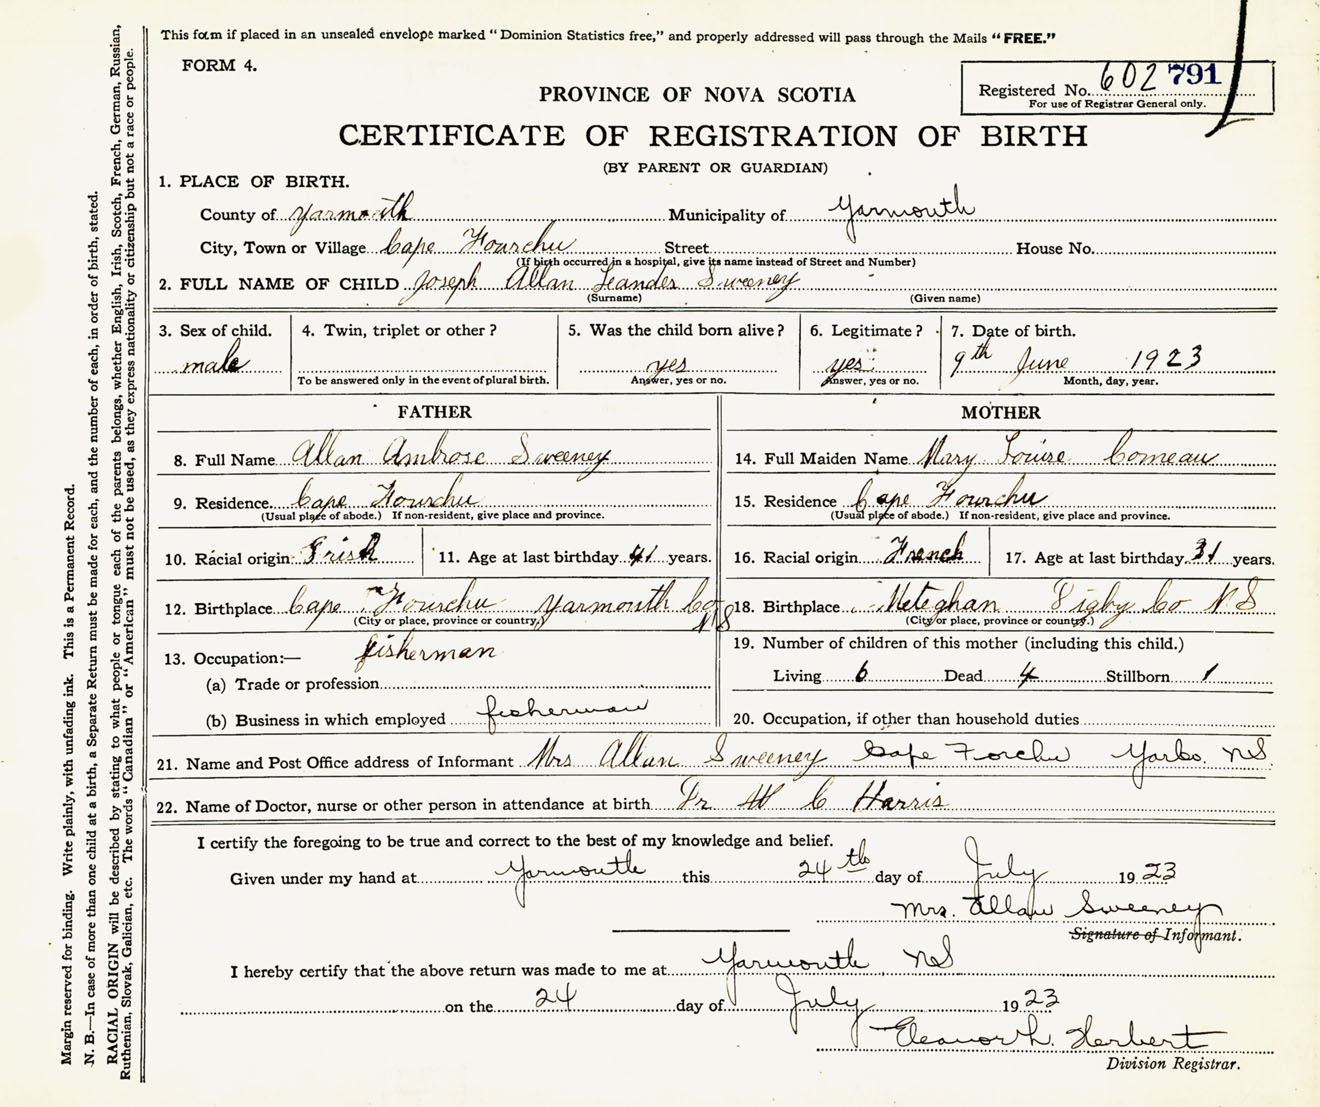 This form if placed in an unsealed envelope marked "Dominion Statistics free," and properly addressed will pass through the Mails "FREE."
FORM 4.
Registered No. 602 791
For use of Registrar General only.
PROVINCE OF NOVA SCOTIA
CERTIFICATE OF REGISTRATION OF BIRTH
(BY PARENT OR GUARDIAN)
1. PLACE OF BIRTH.
County of Yarmouth Municipality of Yarmouth
City, Town or Village Cape Fourchu Street House No.
(If birth occurred in a hospital, give its name instead of Street and Number)
2. FULL NAME OF CHILD Joseph Allan Leander Sweeney
(Surname) (Given name)
3. Sex of child. 4. Twin, triplet or other? 5. Was the child born alive? 6. Legitimate? 7. Date of birth.
male yes yes 9th June 1923
To be answered only in the event of plural birth. Answer, yes or no. Answer, yes or no. Month, day, year.
FATHER MOTHER
8. Full Name Allan Ambrose Sweeney 14. Full Maiden Name Mary Louise Comeau
9. Residence Cape Fourchu 15. Residence Cape Fourchu
(Usual place of abode.) If non-resident, give place and province. (Usual place of abode.) If non-resident, give place and province.
10. Racial origin Irish 11. Age at last birthday 41 years. 16. Racial origin French 17. Age at last birthday 31 years.
12. Birthplace Cape Fourchu Yarmouth Co NS 18. Birthplace Meteghan Digby Co NS
(City or place, province or country.) (City or place, province or country.)
13. Occupation:— fisherman 19. Number of children of this mother (including this child.)
(a) Trade or profession Living 6 Dead 4 Stillborn 1
(b) Business in which employed fisherman 20. Occupation, if other than household duties
21. Name and Post Office address of Informant Mrs Allan Sweeney Cape Forchu Yarco. NS.
22. Name of Doctor, nurse or other person in attendance at birth Dr W C Harris
I certify the foregoing to be true and correct to the best of my knowledge and belief.
Given under my hand at Yarmouth this 24th day of July 1923
Mrs. Allan Sweeney
Signature of Informant.
I hereby certify that the above return was made to me at Yarmouth NS
on the 24 day of July 1923
Eleanor L. Herbert
Division Registrar.
Margin reserved for binding. Write plainly, with unfading ink. This is a Permanent Record.
N. B.—In case of more than one child at a birth, a Separate Return must be made for each, and the number of each, in order of birth, stated.
RACIAL ORIGIN will be described by stating to what people or tongue each of the parents belongs, whether English, Irish, Scotch, French, German, Russian,
Ruthenian, Slovak, Galician, etc. The words "Canadian" or "American" must not be used, as they express nationality or citizenship but not a race or people.